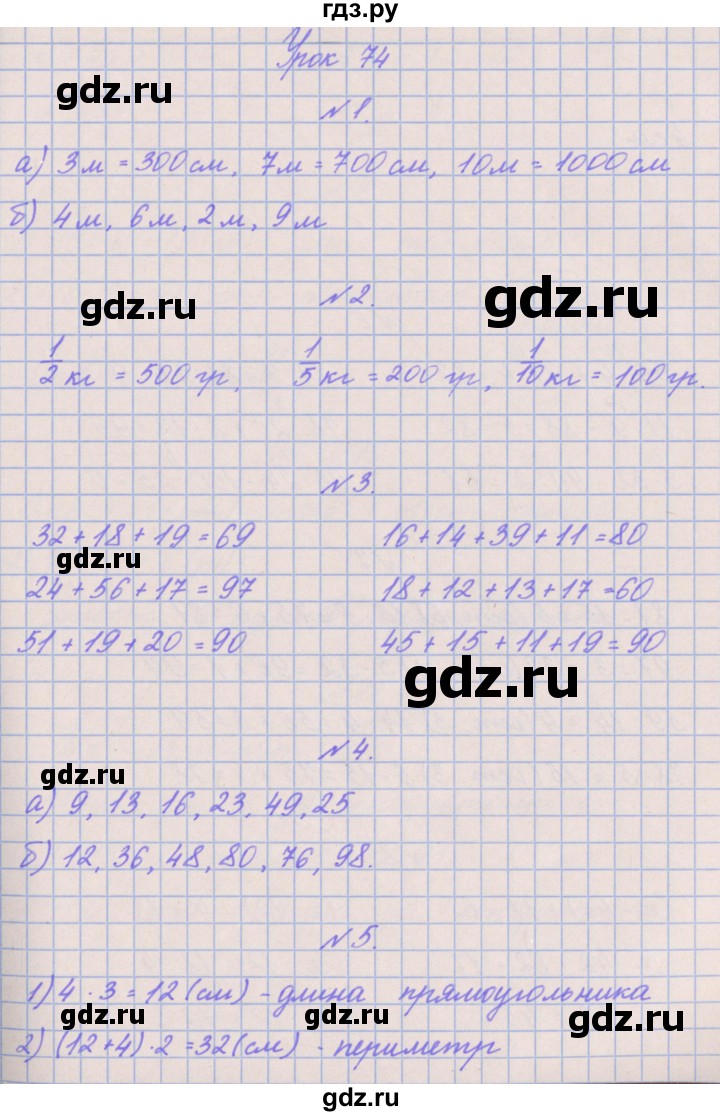 гдз.ру
Урок 74
gdz.ru
№1.
а) 3м = 300см, 7м = 700см, 10м = 1000см
б) 4м, 6м, 2м, 9м
gdz.ru
№2.
gdz.ru
1/2 кг = 500гр, 1/5 кг = 200гр, 1/10 кг = 100гр.
№3.
32+18+19=69 16+14+39+11=80
gdz.ru
24+56+17=97 18+12+13+17=60
51+19+20=90 45+15+11+19=90
gdz.ru
№4.
gdz.ru
а) 9, 13, 16, 23, 49, 25
б) 12, 36, 48, 80, 76, 98.
№5.
1) 4·3=12(см) - длина прямоугольника
gdz.ru gdz.ru gdz.ru
2) (12+4)·2=32(см) - периметр
gdz.ru